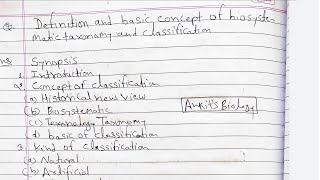 Q. Definition and basic concept of biosyste-
matic taxonomy and classification
Ans Synopsis
1. Introduction
2. Concept of classification
(a) Historical view View
(b) Biosystematic
Ankit's Biology
(c) Taxonology Taxonomy
d) basic of classification
3. kind of classification
(a) Natural
(b) Artificial